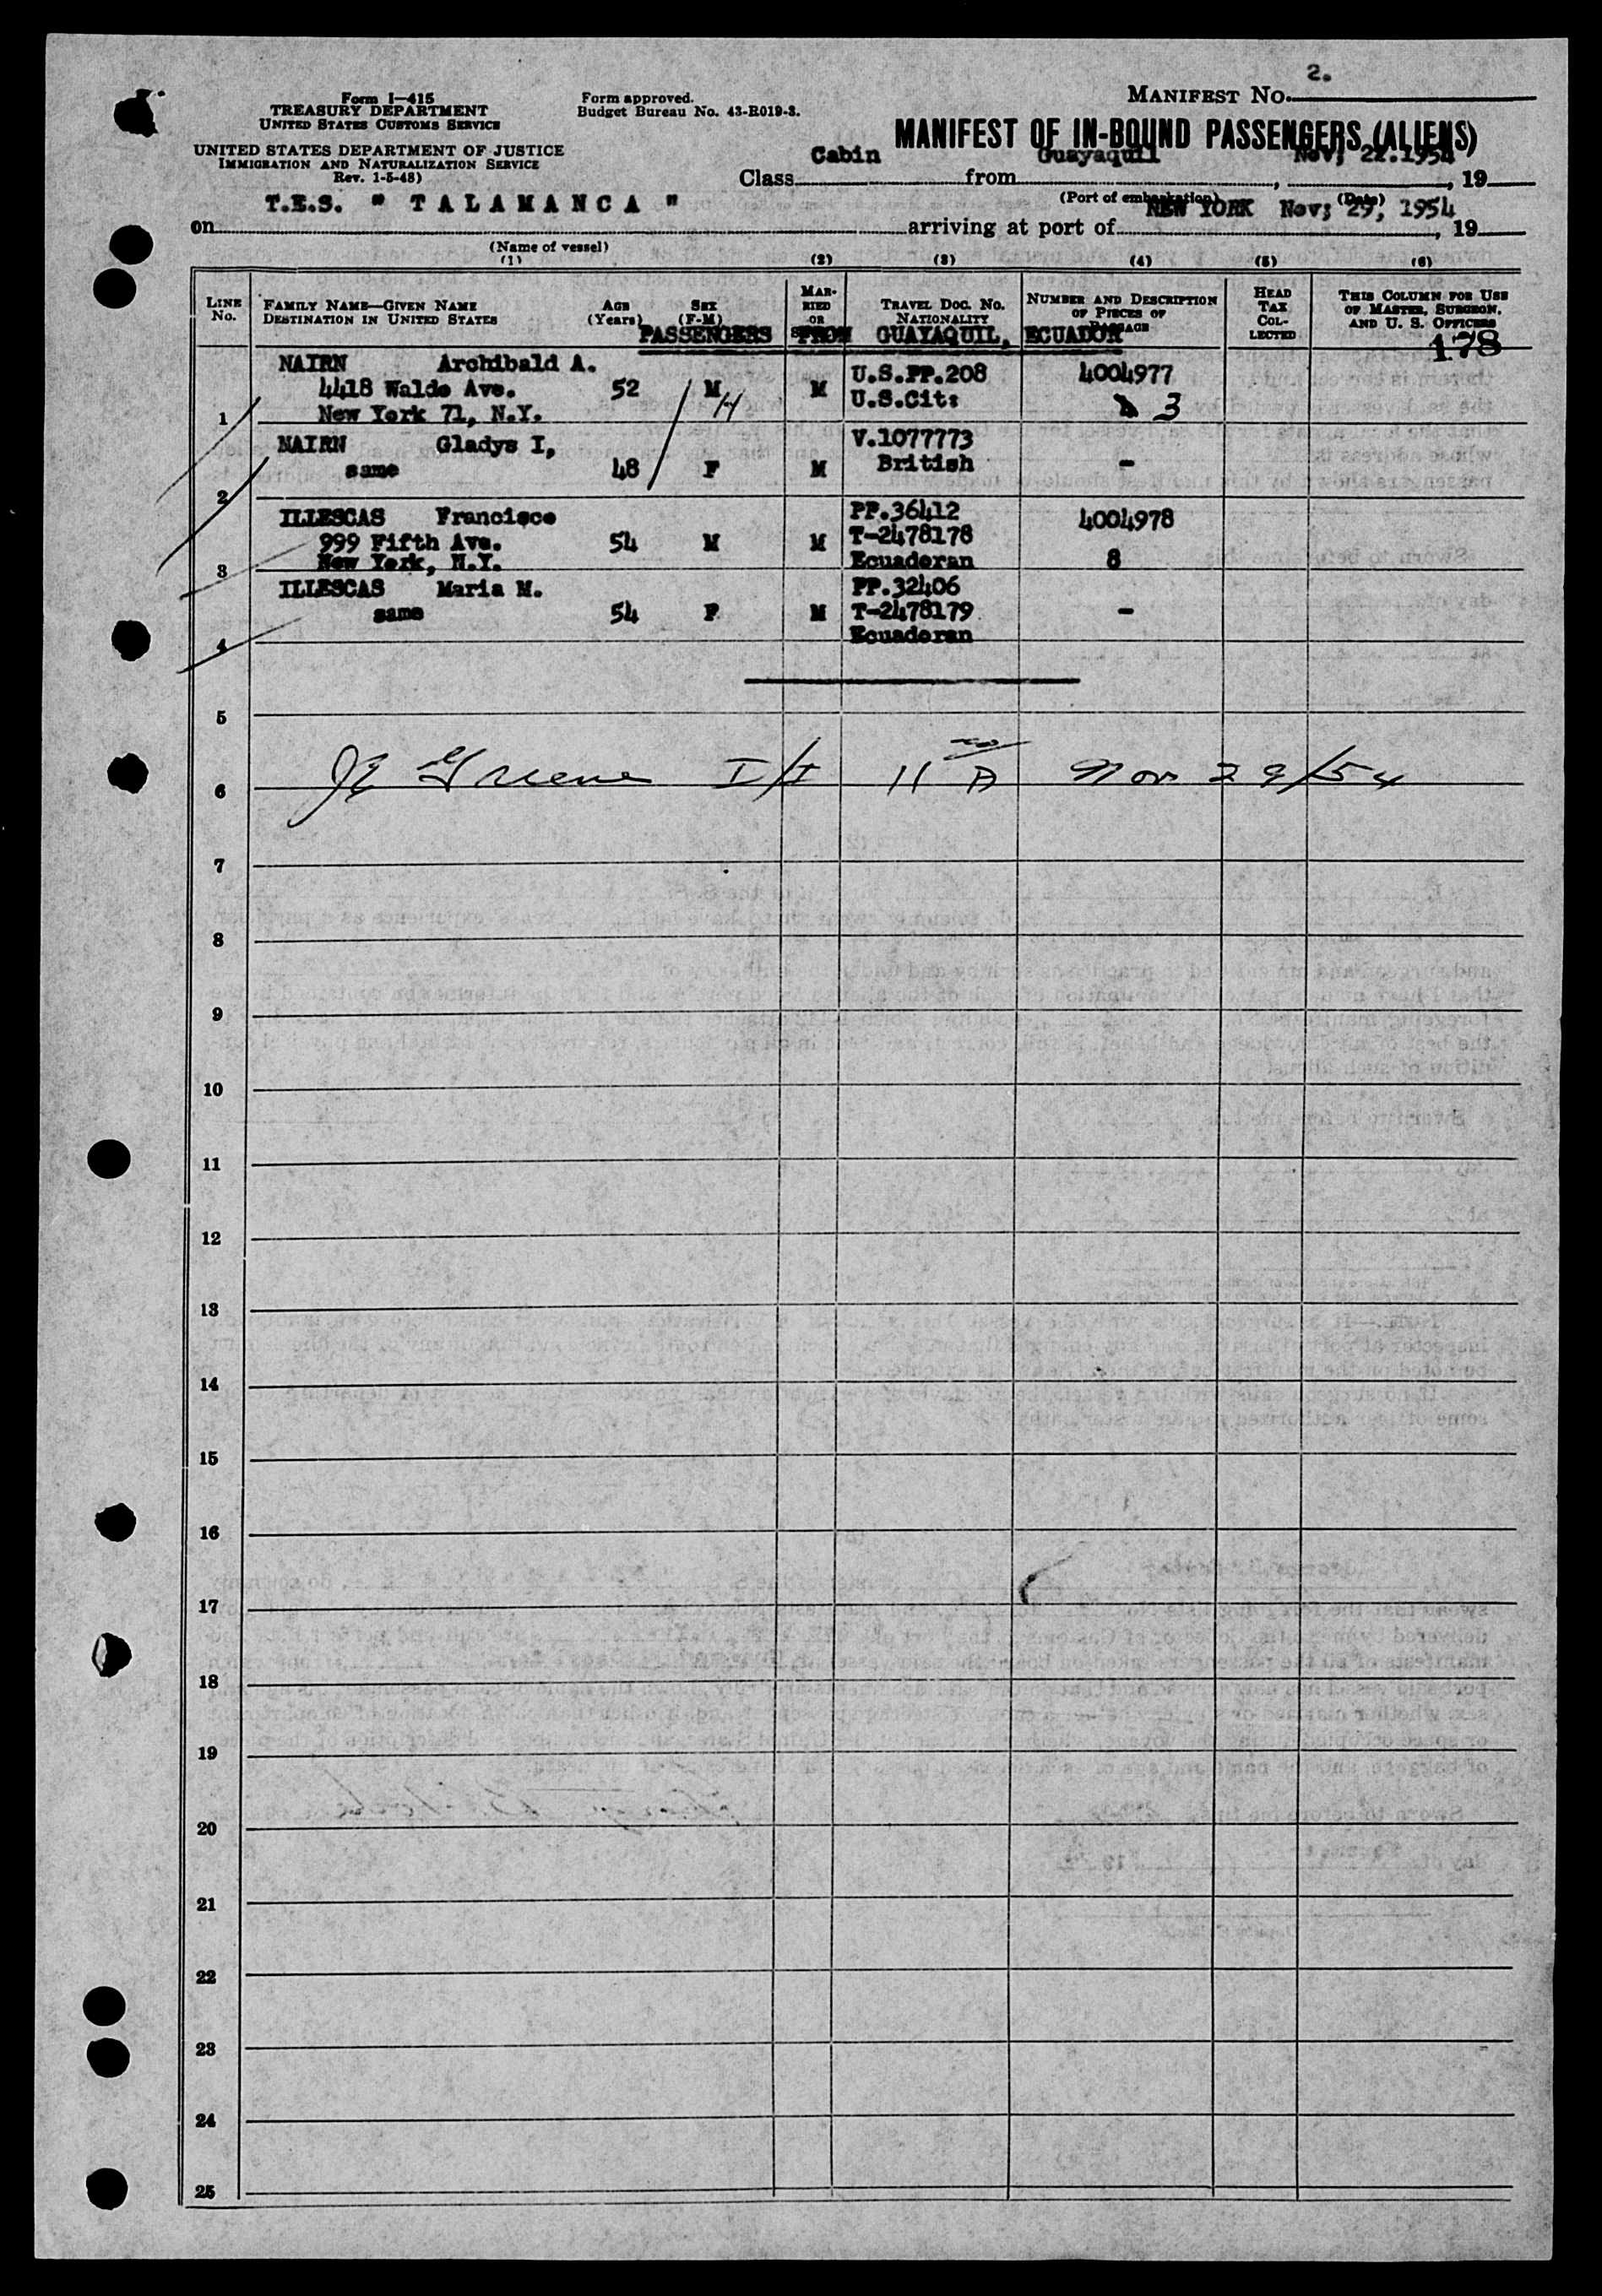 2.
Form I—415
TREASURY DEPARTMENT
UNITED STATES CUSTOMS SERVICE
UNITED STATES DEPARTMENT OF JUSTICE
IMMIGRATION AND NATURALIZATION SERVICE
Rev. 1-5-48)
Form approved.
Budget Bureau No. 43-R019-3.
MANIFEST NO.
MANIFEST OF IN-BOUND PASSENGERS (ALIENS)
Class Cabin from Guayaquil, Nov; 22.1954, 19
(Port of embarkation) (Date)
on T.E.S. " TALAMANCA " arriving at port of NEW YORK Nov; 29, 1954, 19
(Name of vessel)
(1) (2) (3) (4) (5) (6)
LINE No. FAMILY NAME—GIVEN NAME DESTINATION IN UNITED STATES AGE (Years) SEX (F-M) MARRIED OR TRAVEL DOC. NO. NATIONALITY NUMBER AND DESCRIPTION OF PIECES OF HEAD TAX COLLECTED THIS COLUMN FOR USE OF MASTER, SURGEON, AND U. S. OFFICERS
PASSENGERS FROM GUAYAQUIL, ECUADOR
178
NAIRN Archibald A. U.S.PP.208 4004977
4418 Waldo Ave. 52 M M U.S.Cit:
1 New York 71, N.Y. 3
NAIRN Gladys I, V.1077773
same 48 F M British -
2
ILLESCAS Francisco PP.36412 4004978
999 Fifth Ave. 54 M M T-2478178
3 New York, N.Y. Ecuadoran 8
ILLESCAS Maria M. PP.32406
same 54 F M T-2478179 -
4 Ecuadoran
5
6 Greene I/I 11 A Nov 29/54
7
8
9
10
11
12
13
14
15
16
17
18
19
20
21
22
23
24
25